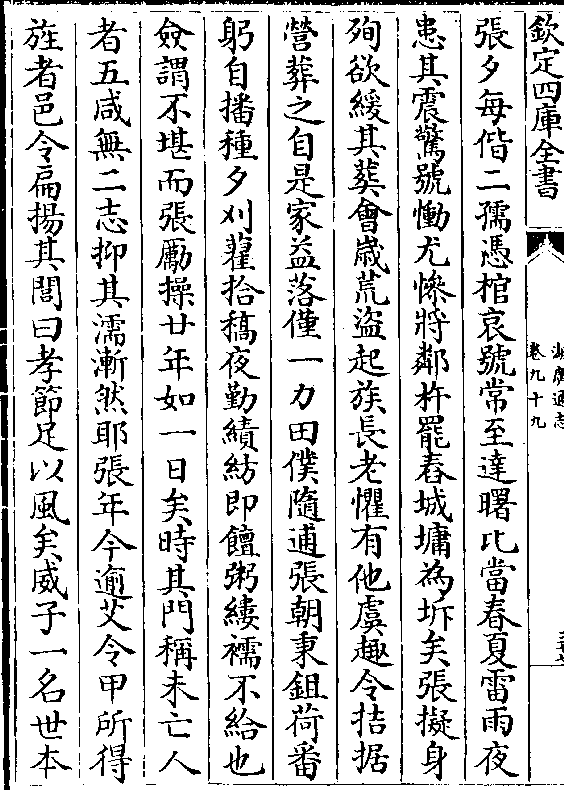 欽定四庫全書
湖廣通志
卷九十九
張夕每偕二孺憑棺哀號常至達曙比當春夏雷雨夜
患其震驚號慟尤慘將鄰杵罷舂城墉為圻矣張擬身
殉欲緩其葬會歲荒盜起族長老懼有他虞趣令拮据
營葬之自是家益落僅一力田僕隨逋張朝秉鉏荷畚
躬自播種夕刈藋拾穚夜勤績紡即饘粥縷襦不給也
僉謂不堪而張勵操廿年如一日矣時其門稱未亡人
者五咸無二志抑其濡漸然耶張年今逾艾令甲所得
旌者邑令扁揚其閭曰孝節足以風矣威子一名世本